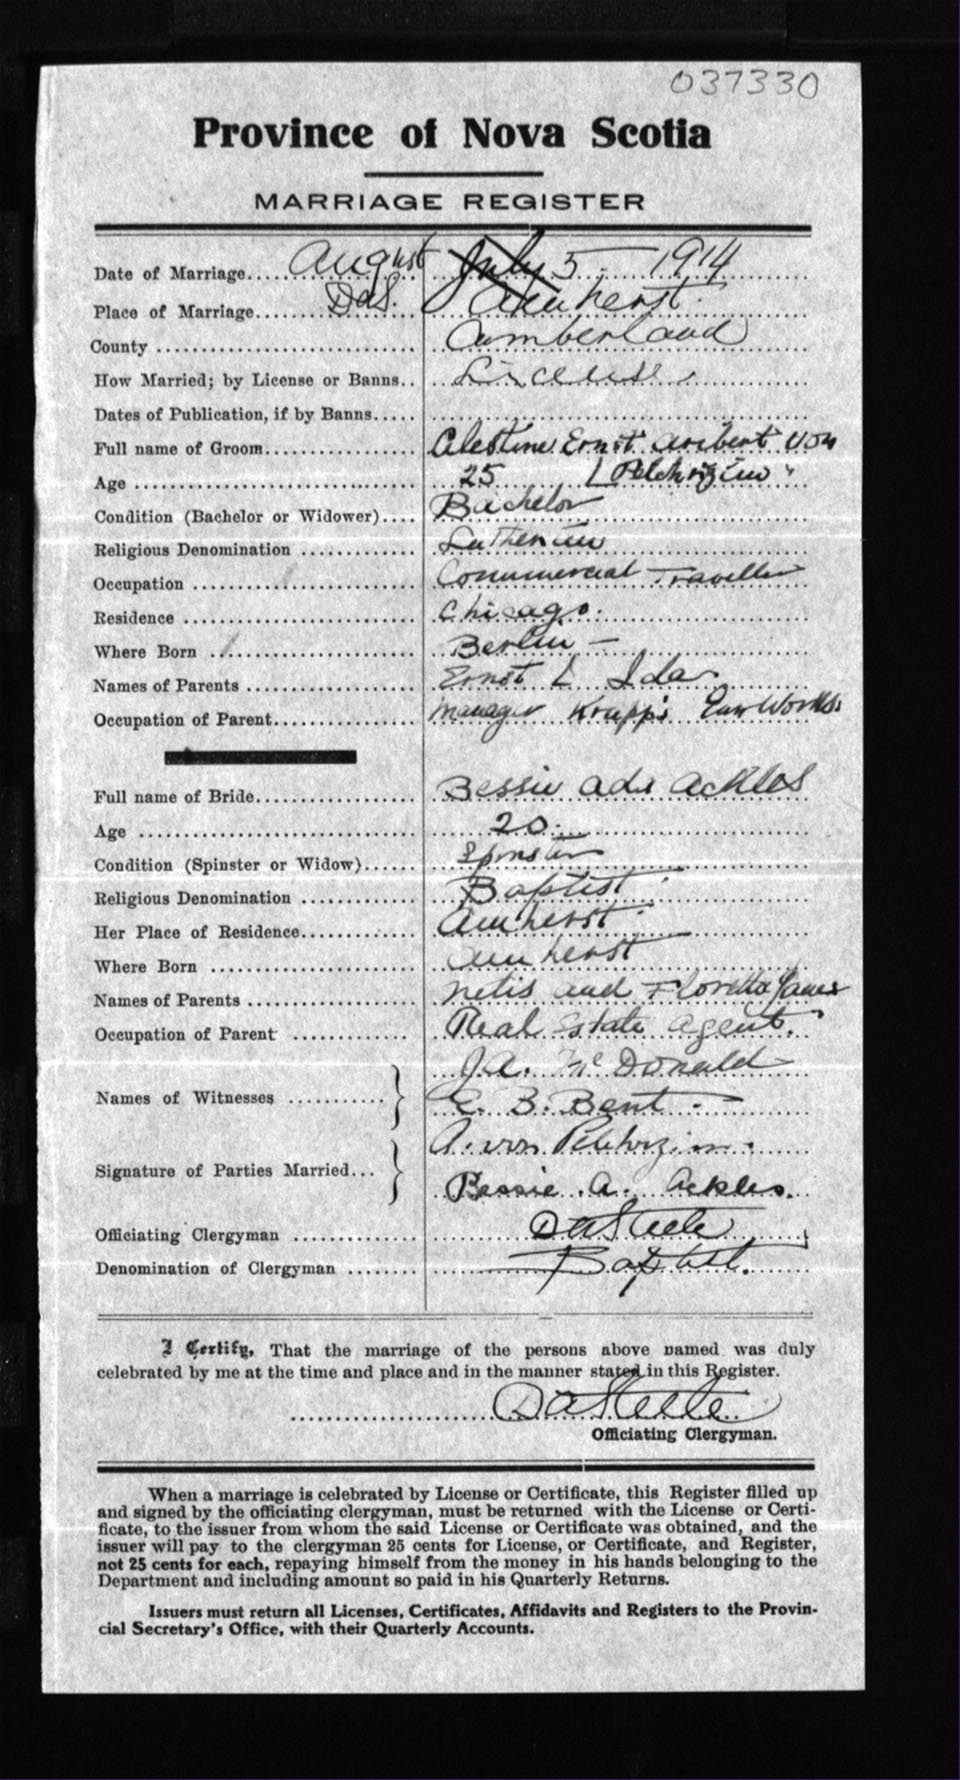 037330
Province of Nova Scotia
MARRIAGE REGISTER
Date of Marriage.... August July 5 - 1914
Place of Marriage....... DaS. Amherst.
County ............ Cumberland
How Married; by License or Banns.. License.
Dates of Publication, if by Banns.....
Full name of Groom............ Celestine Ernst Aribert von
Age ............ 25 Pelchrzim
Condition (Bachelor or Widower).... Bachelor
Religious Denomination ............ Lutheran
Occupation ............ Commercial Traveller
Residence ............ Chicago.
Where Born ............ Berlin —
Names of Parents ............ Ernst Ida
Occupation of Parent............ Manager Krupp's Works.
Full name of Bride............ Bessie Ada Ackles
Age ............ 20.
Condition (Spinster or Widow)...... Spinster
Religious Denomination ............ Baptist.
Her Place of Residence............ Amherst.
Where Born ............ Amherst
Names of Parents ............ and Floretta
Occupation of Parent ............ Real Estate Agent.
J.A. McDonald
Names of Witnesses ...........
E. B. Bent.
A. von Pelchrzim.
Signature of Parties Married...
Bessie A. Ackles.
Officiating Clergyman ............ DaSteele
Denomination of Clergyman ........ Baptist.
I Certify, That the marriage of the persons above named was duly
celebrated by me at the time and place and in the manner stated in this Register.
DaSteele
Officiating Clergyman.
When a marriage is celebrated by License or Certificate, this Register filled up
and signed by the officiating clergyman, must be returned with the License or Certi-
ficate, to the issuer from whom the said License or Certificate was obtained, and the
issuer will pay to the clergyman 25 cents for License, or Certificate, and Register,
not 25 cents for each, repaying himself from the money in his hands belonging to the
Department and including amount so paid in his Quarterly Returns.
Issuers must return all Licenses, Certificates, Affidavits and Registers to the Provin-
cial Secretary's Office, with their Quarterly Accounts.